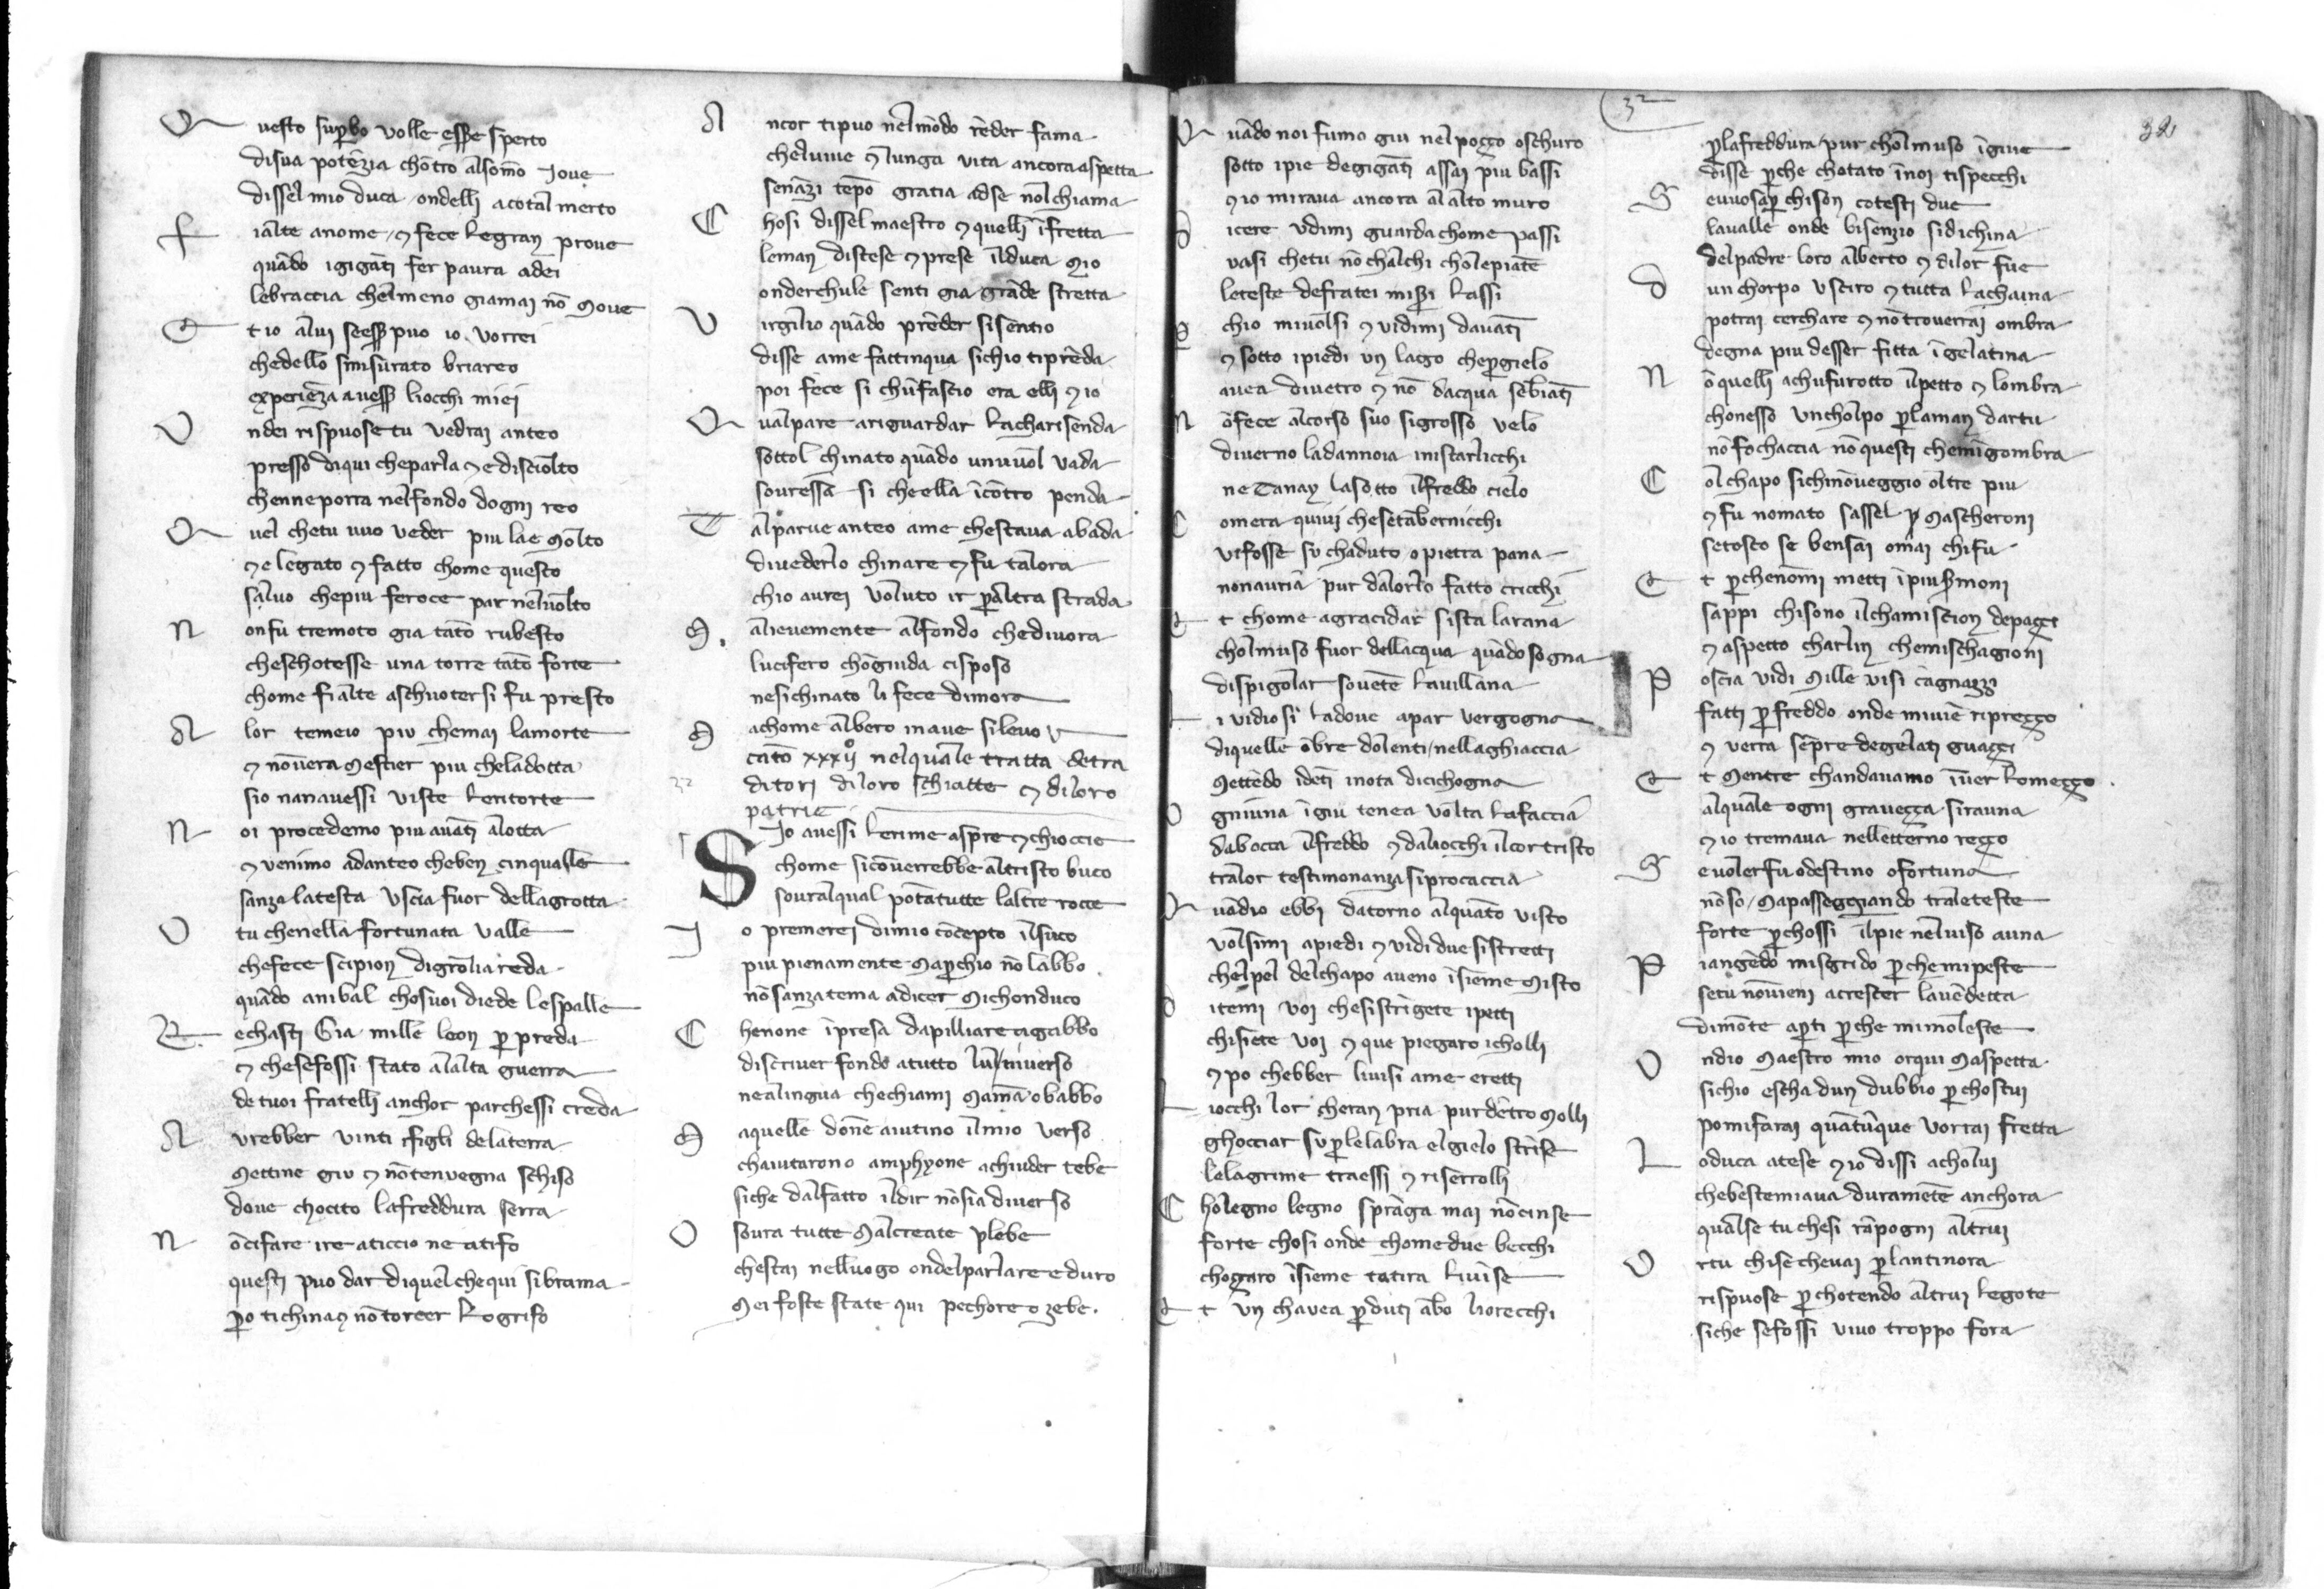 Questo supbo volle esse sperto
disua potēzia chōtro alsomō Jove
dissel mio duca ondelli acotal merto
fialte anome / ⁊ fece legran prove
quādo igigāti fer paura adei
lebraccia chelmeno giamai nō move
Et io alui seesse puo io vorrei
chedello smisurato briareo
experiēza avesse liocchi miei
Ondei rispuose tu vedrai anteo
presso diqui cheparla ⁊ e disciolto
chenneporra nelfondo dogni reo
Quel chetu vuo veder piu lae molto
⁊ e legato ⁊ fatto chome questo
salvo chepiu feroce par nelvolto
Non fu tremoto gia tāto rubesto
cheschotesse una torre tāto forte
chome fialte aschuotersi fu presto
Alor temeio piu chemai lamorte
⁊ nōvera mestier piu cheladotta
sio nanavessi viste leritorte
Noi procedemo piu avāti alotta
⁊ venimo adanteo cheben cinqualle
sanza latesta uscia fuor dellagrotta
O tu chenella fortunata valle
chefece scipion digrolia reda
quādo anibal chosuoi diede lespalle
Rechasti Gia mille leon p preda
⁊ chesefossi stato alalta guerra
de tuoi fratelli anchor parchessi creda
Avrebber vinti ifigli delaterra
mettine giu ⁊ nōtenvegna schifo
dove chocito lafreddura serra
Nōcifare ire aticcio ne atifo
questi puo dar diquel chequi sibrama
po tichina ⁊ nōtorcer logrifo
Ancor tipuo nelmōdo rēder fama
chelvive ⁊ lunga vita ancora aspetta
senāzi tēpo gratia adse nolchiama
Chosi dissel maestro ⁊ quelli īfretta
leman distese ⁊ prese ilduca mio
onderchule senti gia grāde stretta
Virgilio quādo prēder sisentio
disse ame fattinqua sichio tiprēda
poi fece si chūfascio era elli ⁊ io
Qualpare ariguardar lacharisenda
sottol chinato quādo unuvol vada
sovressa si cheella īcōtro penda
Talparve anteo ame chestava abada
divederlo chinare ⁊ fu talora
chio aurei voluto ir paltra strada
Malievemente alfondo chedivora
lucifero chōgiuda cisposo
nesichinato li fece dimora
Machome albero inave silevo
cāto xxxij nelquale tratta detra
32
ditori diloro schiatte ⁊ diloro
patrie
S Jo avessi lerime aspre ⁊ chioccie
chome sicōverrebbe altristo buco
sovralqual pōtātutte laltre rocce
Io premerei dimio cōcepto ilsuco
piu pienamente mapchio nō labbo
nōsanzatema adicer michonduco
Chenone īpresa dapilliare agabbo
discriver fondo atutto luniverso
nealingua chechiami māma obabbo
Maquelle dōne aiutino ilmio verso
chaiutarono amphyone achiuder tebe
siche dalfatto ildir nōsia diverso
O sovra tutte malcreate plebe
chestai nelluogo ondelparlare e duro
mei foste state qui pechore o zebe.
32
321
Quādo noi fumo giu nelpozzo oschuro
sotto ipie degigāti assai piu bassi
⁊ io mirava ancora alalto muro
Dicere udimi guarda chome passi
vasi chetu nō chalchi cholepiāte
leteste defratei miseri lassi
Pchio mivolsi ⁊ vidimi davāti
⁊ sotto ipiedi un lago chepgielo
avea divetro ⁊ nō dacqua sēbiāti
Nōfece alcorso suo sigrosso velo
diverno ladannoia inistarlicchi
ne Tanay lasotto ilfreddo cielo
Comera quivi chesetābernicchi
vifosse su chaduto o pietra pana
nonauria pur dalorlo fatto cricchi
Et chome agracidar sista larana
cholmuso fuor dellacqua quādo sogna
dispigolar sovēte lavillana
Lividio si ladove apar vergogna
diquelle ōbre dolenti / nellaghiaccia
mettēdo idēti inota dicichogna
Ogniuna īgiu tenea volta lafaccia
dabocca ilfreddo ⁊ daliocchi ilcor tristo
tralor testimonanza siprocaccia
Quādio ebbi datorno alquāto visto
volsimi apiedi ⁊ vidi due sistretti
chelpel delchapo aveno īsieme misto
Ditemi voi chesistrīgete ipetti
chisiete voi ⁊ que piegaro icholli
⁊ po chebber livisi ame eretti
Liocchi lor cheran pria pur dētro molli
ghocciar su plelabra elgielo strīse
lelagrime traessi ⁊ riserrolli
Cholegno legno sprāga mai nōcinse
forte chosi onde chome due becchi
chozzaro īsieme tātira livīse
Et un chavea pduti abo liorecchi
plafreddura / pur cholmuso īgiue
disse pche chotāto īnoi tispecchi
Sevvosap chison cotesti due
lavalle onde bisenzio sidichina
delpadre loro alberto ⁊ dilor fue
Dun chorpo usciro ⁊ tutta lachaina
potrai cerchare ⁊ nōtroverrai ombra
degna piu desser fitta īgelatina
Nōquelli achufurotto ilpetto ⁊ lombra
chonesso uncholpo plaman dartu
nōfochaccia nōquesti chemīgombra
Colchapo sichinōveggio oltre piu
⁊ fu nomato sassel mascheroni
setosto se bensai omai chifu
Et pchenomi metti īpiusermoni
sappi chisono ilchamiscion depazzi
⁊ aspetto charlin chemischagioni
Poscia vidi mille visi cagnazzi
fatti pfreddo onde mivie riprezzo
⁊ verra sēpre degelati guazzi
Et mentre chandavamo īver lomezzo
alquale ogni gravezza siravna
⁊ io tremava nelletterno rezzo
Sevolerfu odestino ofortuna
nōso / mapasseggiando traleteste
forte pchossi ilpie nelviso auna
Piangēdo misgrido pchemipeste
setu nōvieni acrescer lavēdetta
dimōte apti pche mimoleste
Ondio maestro mio orqui maspetta
sichio escha dun dubbio pchostui
pomifarai quātūque vorrai fretta
Loduca atese ⁊ io dissi acholui
chebestemiava duramēte anchora
qualse tu chesi rāpogni altrui
Ortu chise chevai plantinora
rispuose pchotendo altrui legote
siche sefossi vivo troppo fora